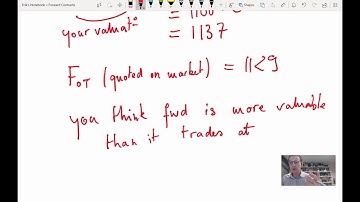 Erik's Notebook » Forward Contracts
= 1100
your valuat°
= 1137
F₀T (quoted on market) = 1129
you think fwd is more valuable
than it trades at